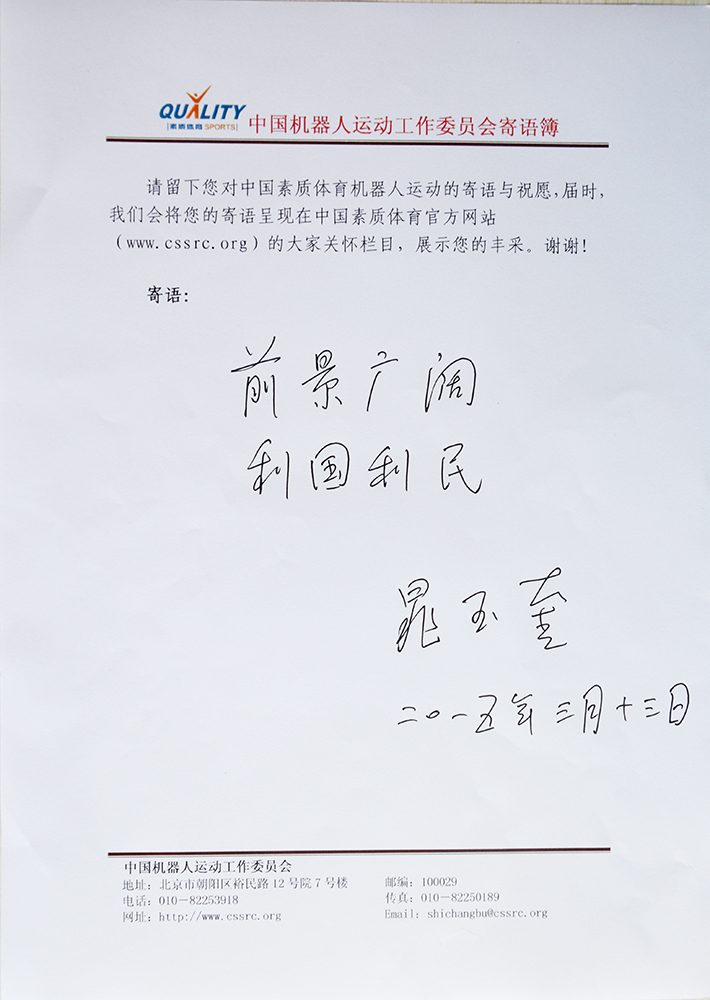 QUALITY
素质体育 SPORTS
中国机器人运动工作委员会寄语簿
请留下您对中国素质体育机器人运动的寄语与祝愿,届时,
我们会将您的寄语呈现在中国素质体育官方网站
(www.cssrc.org)的大家关怀栏目，展示您的丰采。谢谢!
寄语:
前景广阔
利国利民
晁玉奎
二〇一五年三月十三日
中国机器人运动工作委员会
地址: 北京市朝阳区裕民路12号院7号楼 邮编: 100029
电话: 010—82253918 传真: 010—82250189
网址: http://www.cssrc.org Email: shichangbu@cssrc.org